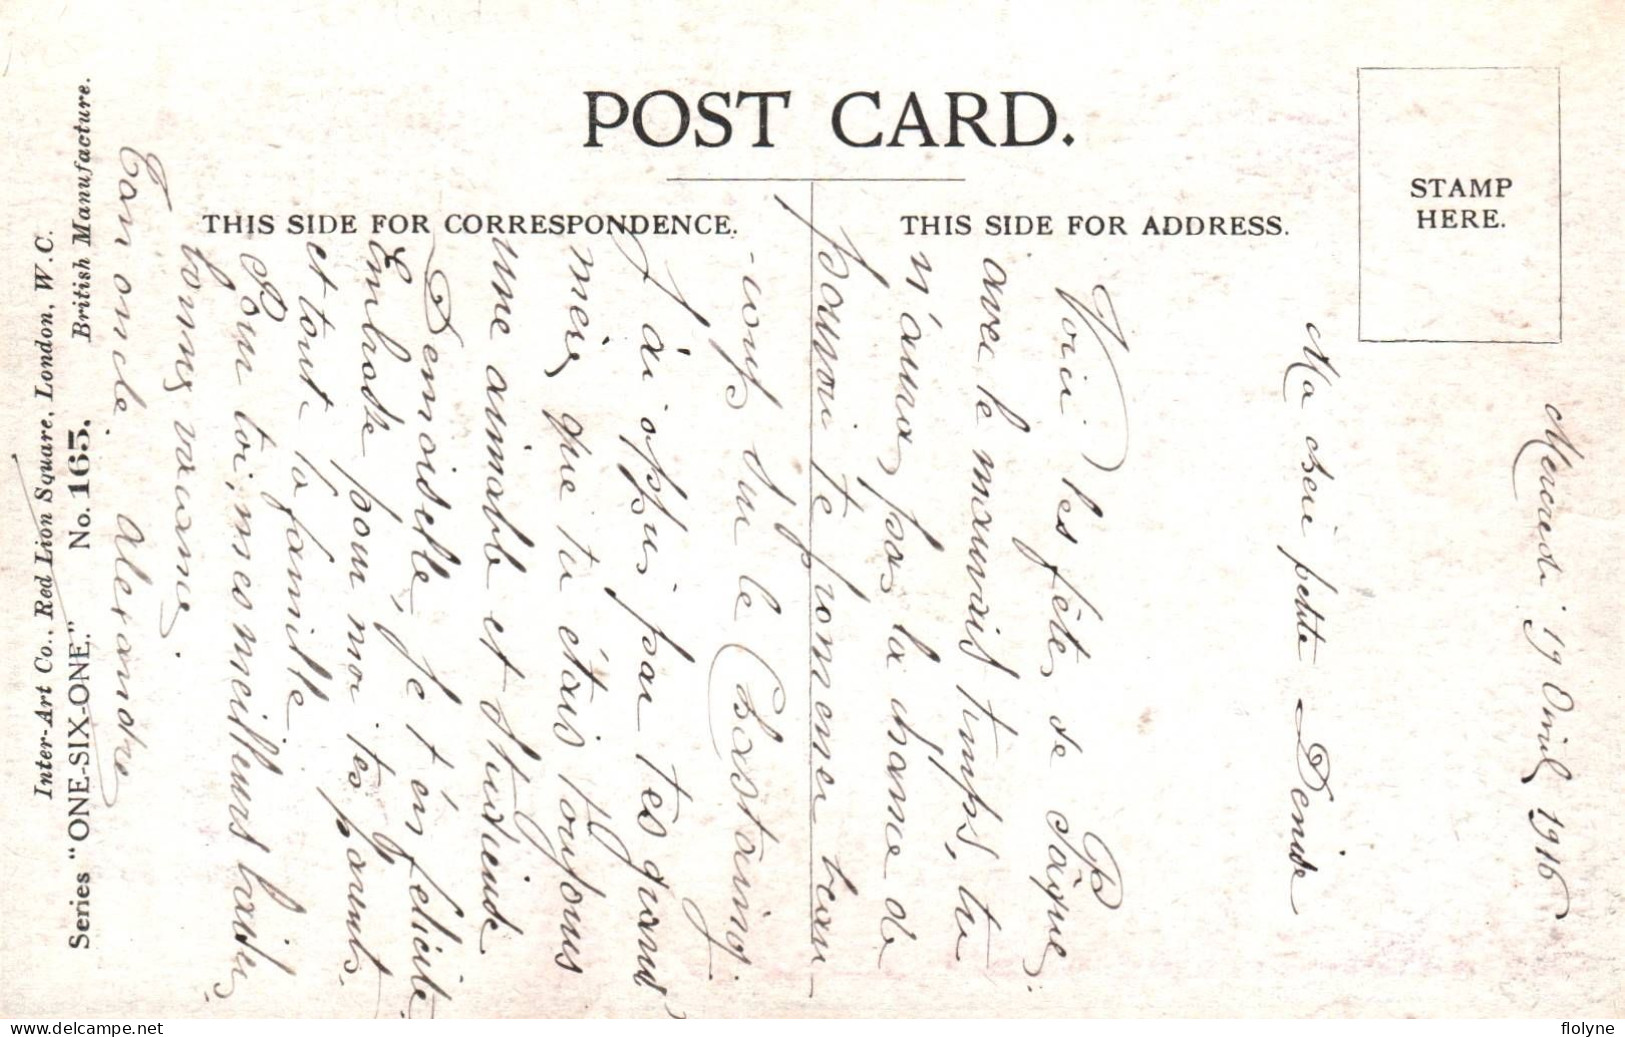 POST CARD.
THIS SIDE FOR CORRESPONDENCE.
THIS SIDE FOR ADDRESS.
STAMP
HERE.
Inter-Art Co., Red Lion Square, London, W.C.
Series "ONE-SIX-ONE." No. 165. British Manufacture.
Mercredi 19 Avril 1916
Ma chère petite Denise
Voici les fêtes de Pâques
avec le mauvais temps, tu
n'auras pas la chance de
pouvoir te promener beau
-coup sur le Chastaing.
J'ai appris par tes grands
mères que tu étais toujours
une aimable et studieuse
Demoiselle, je t'en félicite.
Embrasse pour moi tes parents
et toute la famille
Pour toi, mes meilleurs baisers
Ton oncle Alexandre
delcampe.net
flolyne